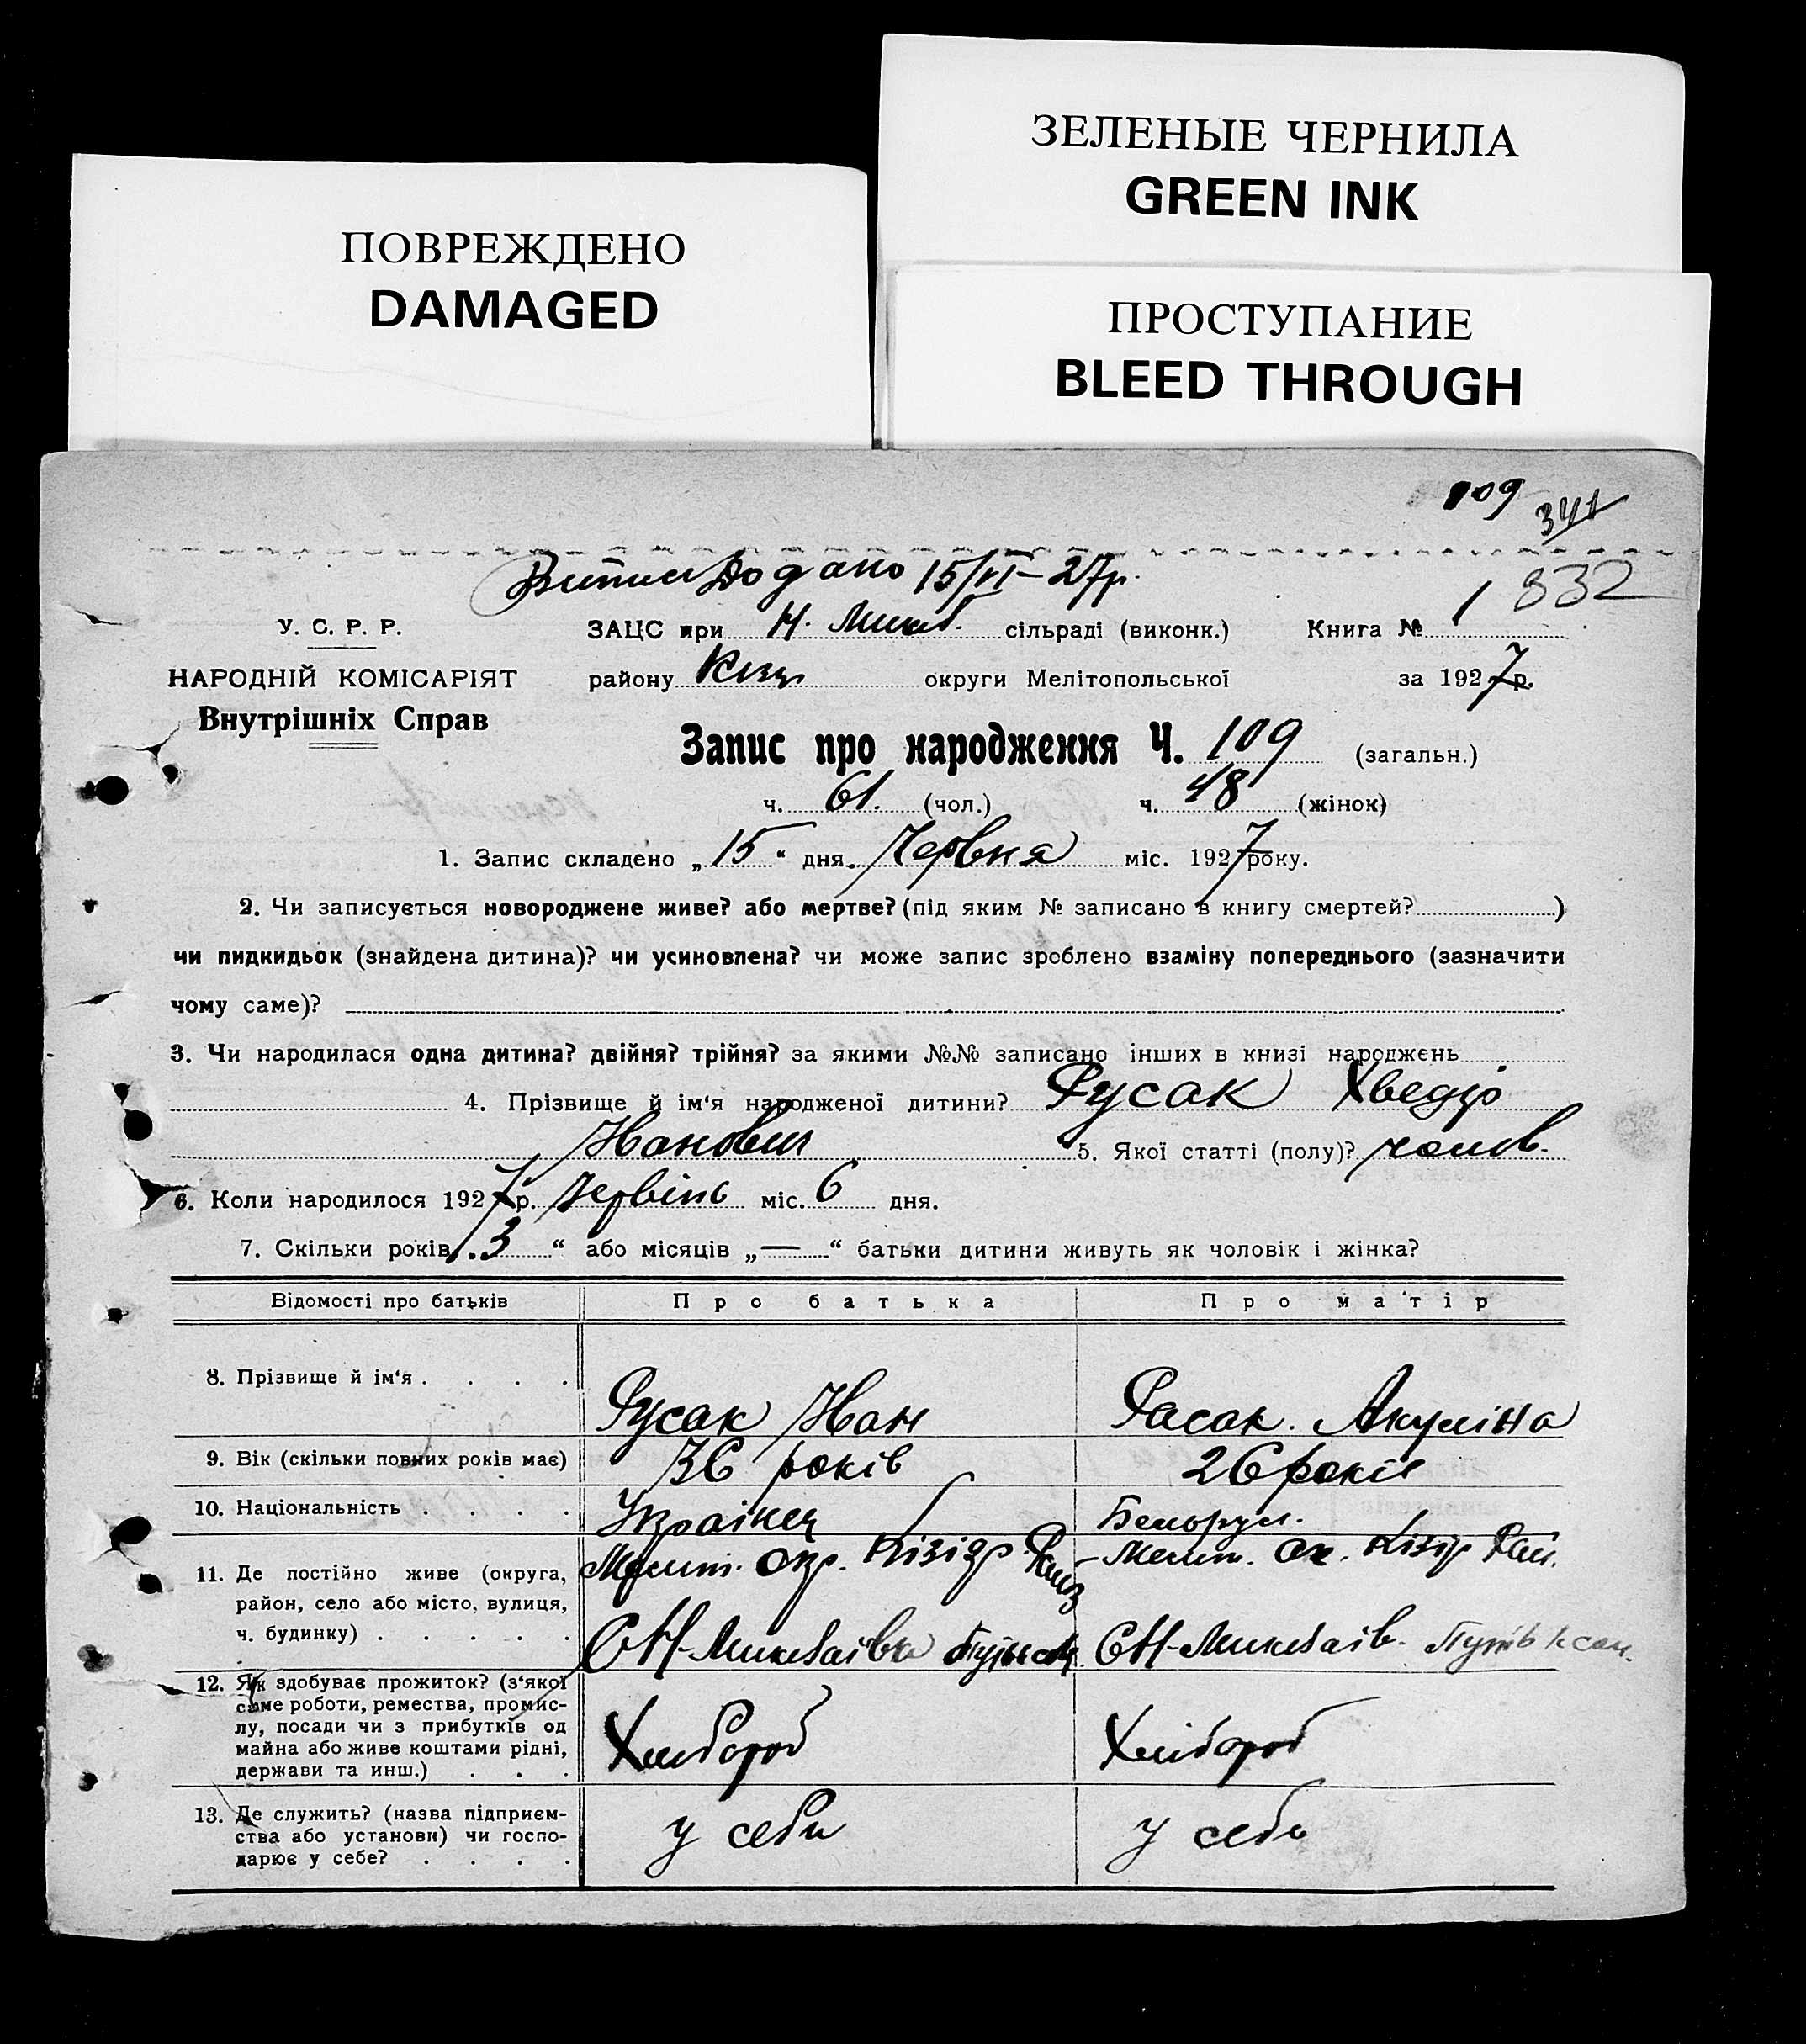 ЗЕЛЕНЫЕ ЧЕРНИЛА
GREEN INK
ПОВРЕЖДЕНО
DAMAGED
ПРОСТУПАНИЕ
BLEED THROUGH
109
341
832
15/VI-27р.
У. С. Р. Р.
ЗАЦС при Н. Микол. сільраді (виконк.) Книга № 1
НАРОДНІЙ КОМІСАРІЯТ
району округи Мелітопольської за 1927 р.
Внутрішніх Справ
Запис про народження Ч. 109 (загальн.)
ч. 61. (чол.) ч. 48 (жінок)
1. Запис складено „15“ дня Червня міс. 1927 року.
2. Чи записується новороджене живе? або мертве? (під яким № записано в книгу смертей? )
чи пидкидьок (знайдена дитина)? чи усиновлена? чи може запис зроблено взаміну попереднього (зазначити
чому саме)?
3. Чи народилася одна дитина? двійня? трійня? за якими №№ записано інших в книзі народжень
4. Прізвище й ім‘я народженої дитини? Русак Хведір
Иванович 5. Якої статті (полу)? чолов.
6. Коли народилося 1927 р. Червінь міс. 6 дня.
7. Скільки років „3“ або місяців „—“ батьки дитини живуть як чоловік і жінка?
Відомості про батьків Про батька Про матір
8. Прізвище й ім‘я . . . . Русак Иван Расак. Акуліна
9. Вік (скільки повних років має) 36 років 26 років
10. Національність . . . . Українец Белорус.
11. Де постійно живе (округа, Меліт. Окр. Кізіяр Мелит. Ок. Кізіяр Рай.
район, село або місто, вулиця,
ч. будинку) . . . . . СН-Миколаівка СН-Миколаів.
12. Як здобуває прожиток? (з‘якої
саме роботи, ремества, промис-
лу, посади чи з прибутків од
майна або живе коштами рідні,
держави та инш.) . . . Хлібороб Хлібороб
13. Де служить? (назва підприєм-
ства або установи) чи госпо-
дарює у себе? . . . . у себе у себе